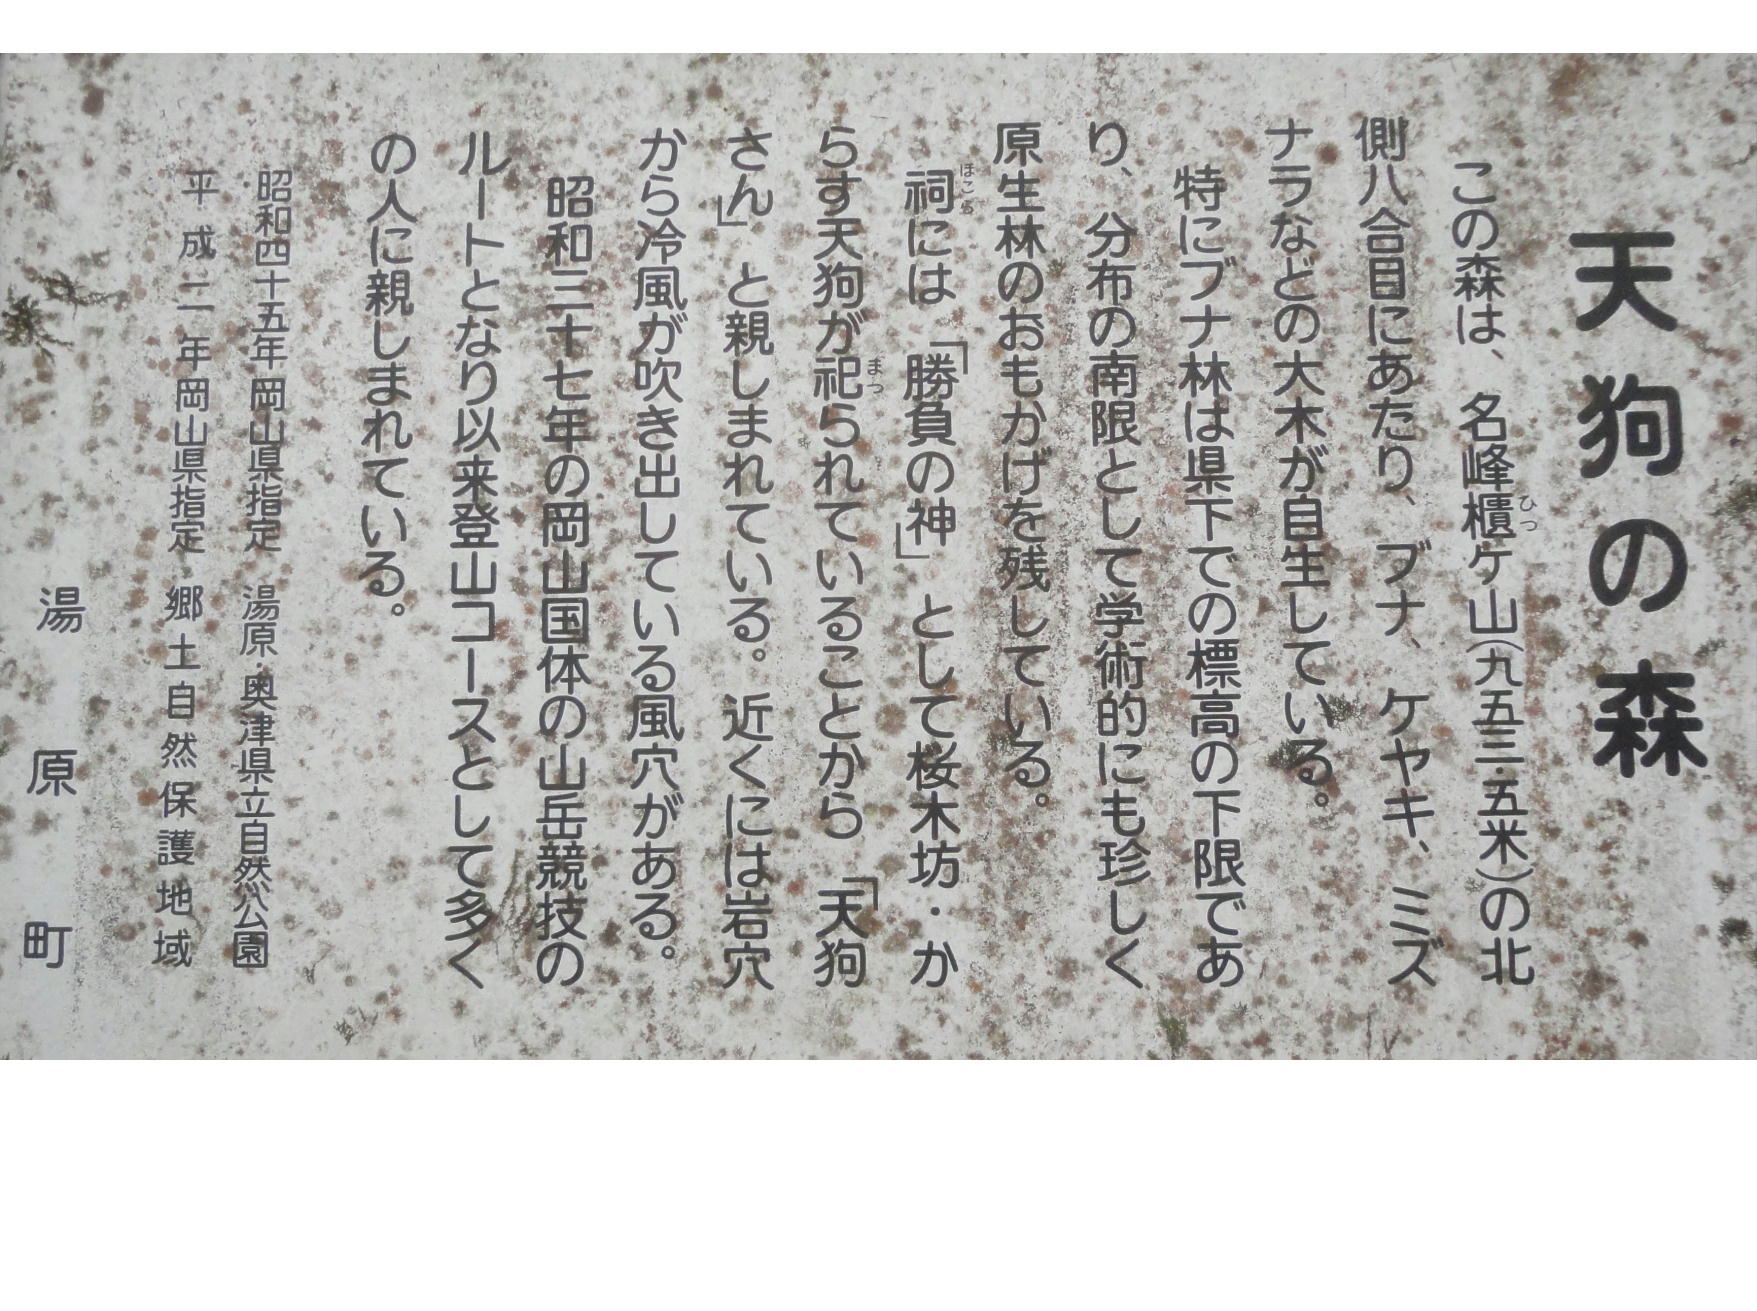 天狗の森
この森は、名峰櫃ケ山(九五三・五米)の北
側八合目にあたり、ブナ、ケヤキ、ミズ
ナラなどの大木が自生している。
特にブナ林は県下での標高の下限であ
り、分布の南限として学術的にも珍しく
原生林のおもかげを残している。
祠には「勝負の神」として桜木坊・か
らす天狗が祀られていることから「天狗
さん」と親しまれている。近くには岩穴
から冷風が吹き出している風穴がある。
昭和三十七年の岡山国体の山岳競技の
ルートとなり以来登山コースとして多く
の人に親しまれている。
・昭和四十五年岡山県指定 湯原・奥津県立自然公園
平成二年岡山県指定・郷土自然保護地域
湯原町
ひつ
ほこら
まつ